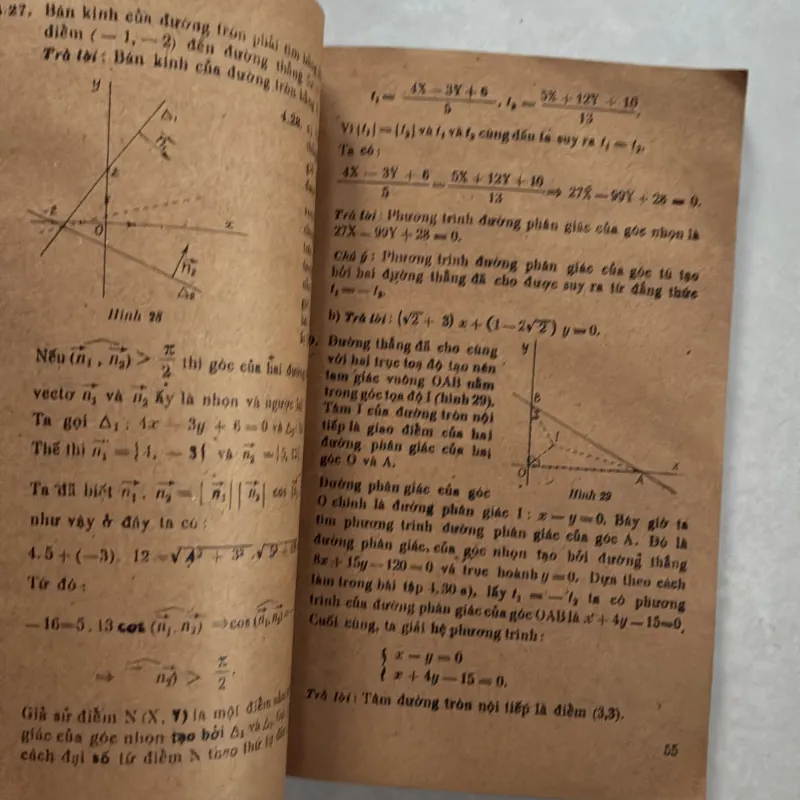 4.27. Bán kính của đường tròn phải tìm bằng
điểm (− 1, − 2) đến đường thẳng
Trả lời : Bán kính của đường tròn bằng
4.28.
y
Δ₁
n₁
x
O
n₂
Δ₂
Hình 28
Nếu (n₁ , n₂) > π/2 thì góc của hai đường
vectơ n₁ và n₂ ấy là nhọn và ngược lại
Ta gọi Δ₁ : 4x − 3y + 6 = 0 và
Thế thì n₁ = {4, − 3} và n₂ = {5, 12
Ta đã biết n₁ . n₂ = |n₁| |n₂| cos
như vậy ở đây ta có :
4.5 + (−3) . 12 = √4² + 3² .
Từ đó :
−16 = 5 . 13 cos (n₁, n₂) ⇒ cos (n₁, n₂) =
⇒ n₂) > π/2.
Giả sử điểm N (X, Y) là một điểm nằm
giác của góc nhọn tạo bởi Δ₁ và
cách đại số từ điểm N theo thứ tự đến
t₁ = (4X − 3Y + 6)/5 , t₂ = (5X + 12Y + 10)/13.
Vì |t₁| = |t₂| và t₁ và t₂ cùng dấu ta suy ra t₁ = t₂.
Ta có :
(4X − 3Y + 6)/5 = (5X + 12Y + 10)/13 ⇒ 27X − 99Y + 28 = 0.
Trả lời : Phương trình đường phân giác của góc nhọn là
27X − 99Y + 28 = 0.
Chú ý : Phương trình đường phân giác của góc tù tạo
bởi hai đường thẳng đã cho được suy ra từ đẳng thức
t₁ = − t₂.
b) Trả lời : (√2 + 3) x + (1 − 2√2) y = 0.
9. Đường thẳng đã cho cùng
với hai trục toạ độ tạo nên
tam giác vuông OAB nằm
trong góc tọa độ I (hình 29).
Tâm I của đường tròn nội
tiếp là giao điểm của hai
đường phân giác của hai
góc O và A.
y
B
I
O
A
x
Hình 29
Đường phân giác của góc
O chính là đường phân giác 1 : x − y = 0. Bây giờ ta
tìm phương trình đường phân giác của góc A. Đó là
đường phân giác của góc nhọn tạo bởi đường thẳng
8x + 15y − 120 = 0 và trục hoành y = 0. Dựa theo cách
làm trong bài tập 4.30 a), lấy t₁ = − t₂ ta có phương
trình của đường phân giác của góc OAB là x + 4y − 15 = 0.
Cuối cùng, ta giải hệ phương trình :
{ x − y = 0
{ x + 4y − 15 = 0.
Trả lời : Tâm đường tròn nội tiếp là điểm (3,3).
55